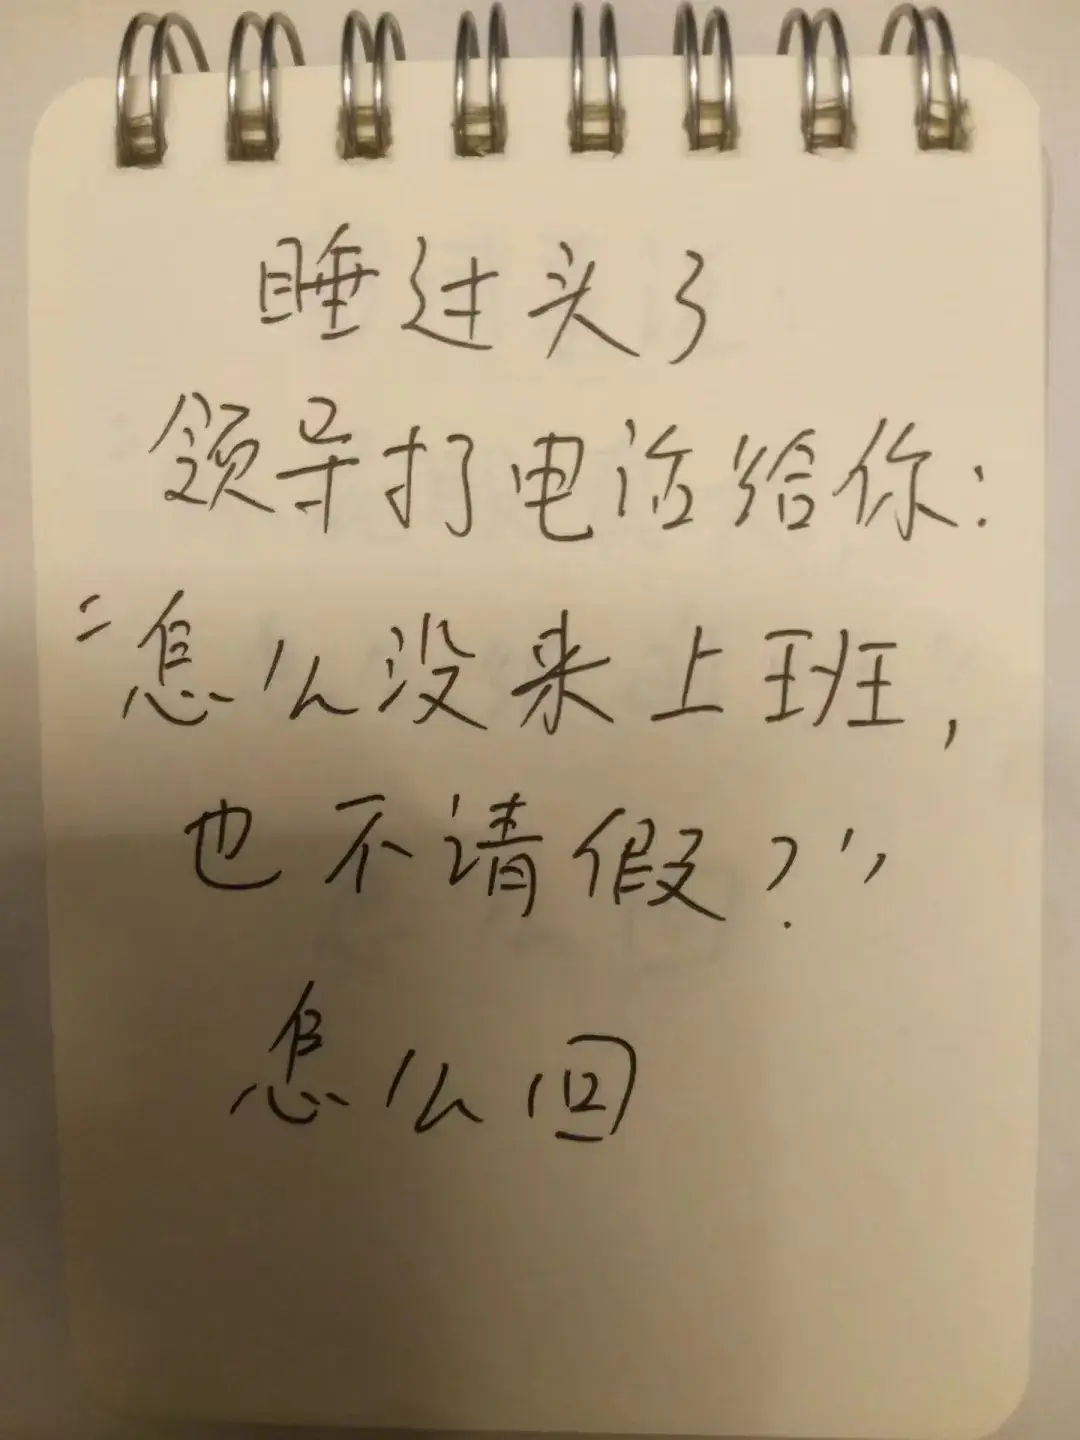 睡过头了
领导打电话给你：
“怎么没来上班，
也不请假？”
怎么回